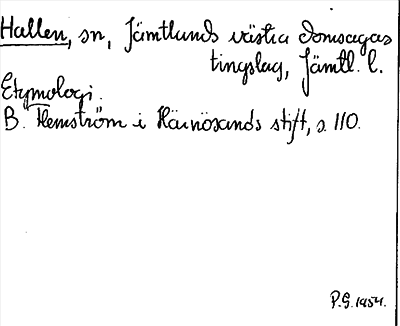 Hallen, sn, Jämtlunds västra domsagas
tingslag, Jämtl. l.
Etymologi.
B. Hemström i Härnösands stift, s. 110.
P.G. 1954.